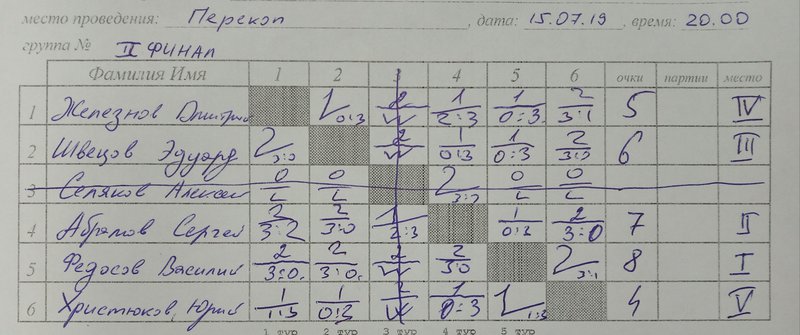 место проведения: Перекоп, дата: 15.07.19, время: 20.00
группа № II ФИНАЛ
Фамилия Имя 1 2 3 4 5 6 очки партии место
1 Железнов Дмитрий 1 0:3 2 W 1 2:3 1 0:3. 2 3:1 5 IV
2 Швецов Эдуард 2 3:0 2 W 1 0:3 1 0:3 2 3:0 6 III
3 Селяков Алексей 0 L 0 L 2 3:2 0 L 0 L
4 Абрамов Сергей 2 3:2 2 3:0 1 2:3 1 0:3 2 3:0 7 II
5 Федосов Василий 2 3:0. 2 3:0. 2 W 2 3:0 2 3:1 8 I
6 Христюков Юрий 1 1:3 1 0:3 2 W 1 0:3 1 1:3 4 V
1 тур 2 тур 3 тур 4 тур 5 тур